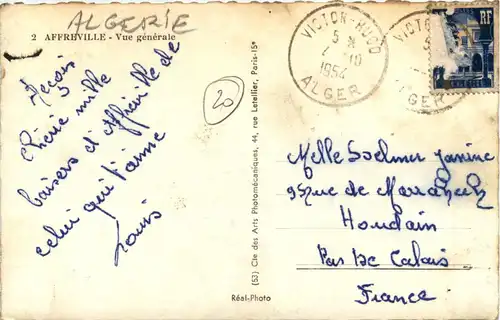 ALGERIE
2 AFFREVILLE - Vue générale
Reçois
Chérie mille
baisers d'Affreville de
celui qui t'aime
Louis
20
(53) Cie des Arts Photomécaniques, 44, rue Letellier, Paris-15e
Réal-Photo
VICTOR-HUGO
5 H
10
1954
ALGER
VICTO
GER
RF
Melle Janine
rue de
Houdain
Pas De Calais
France